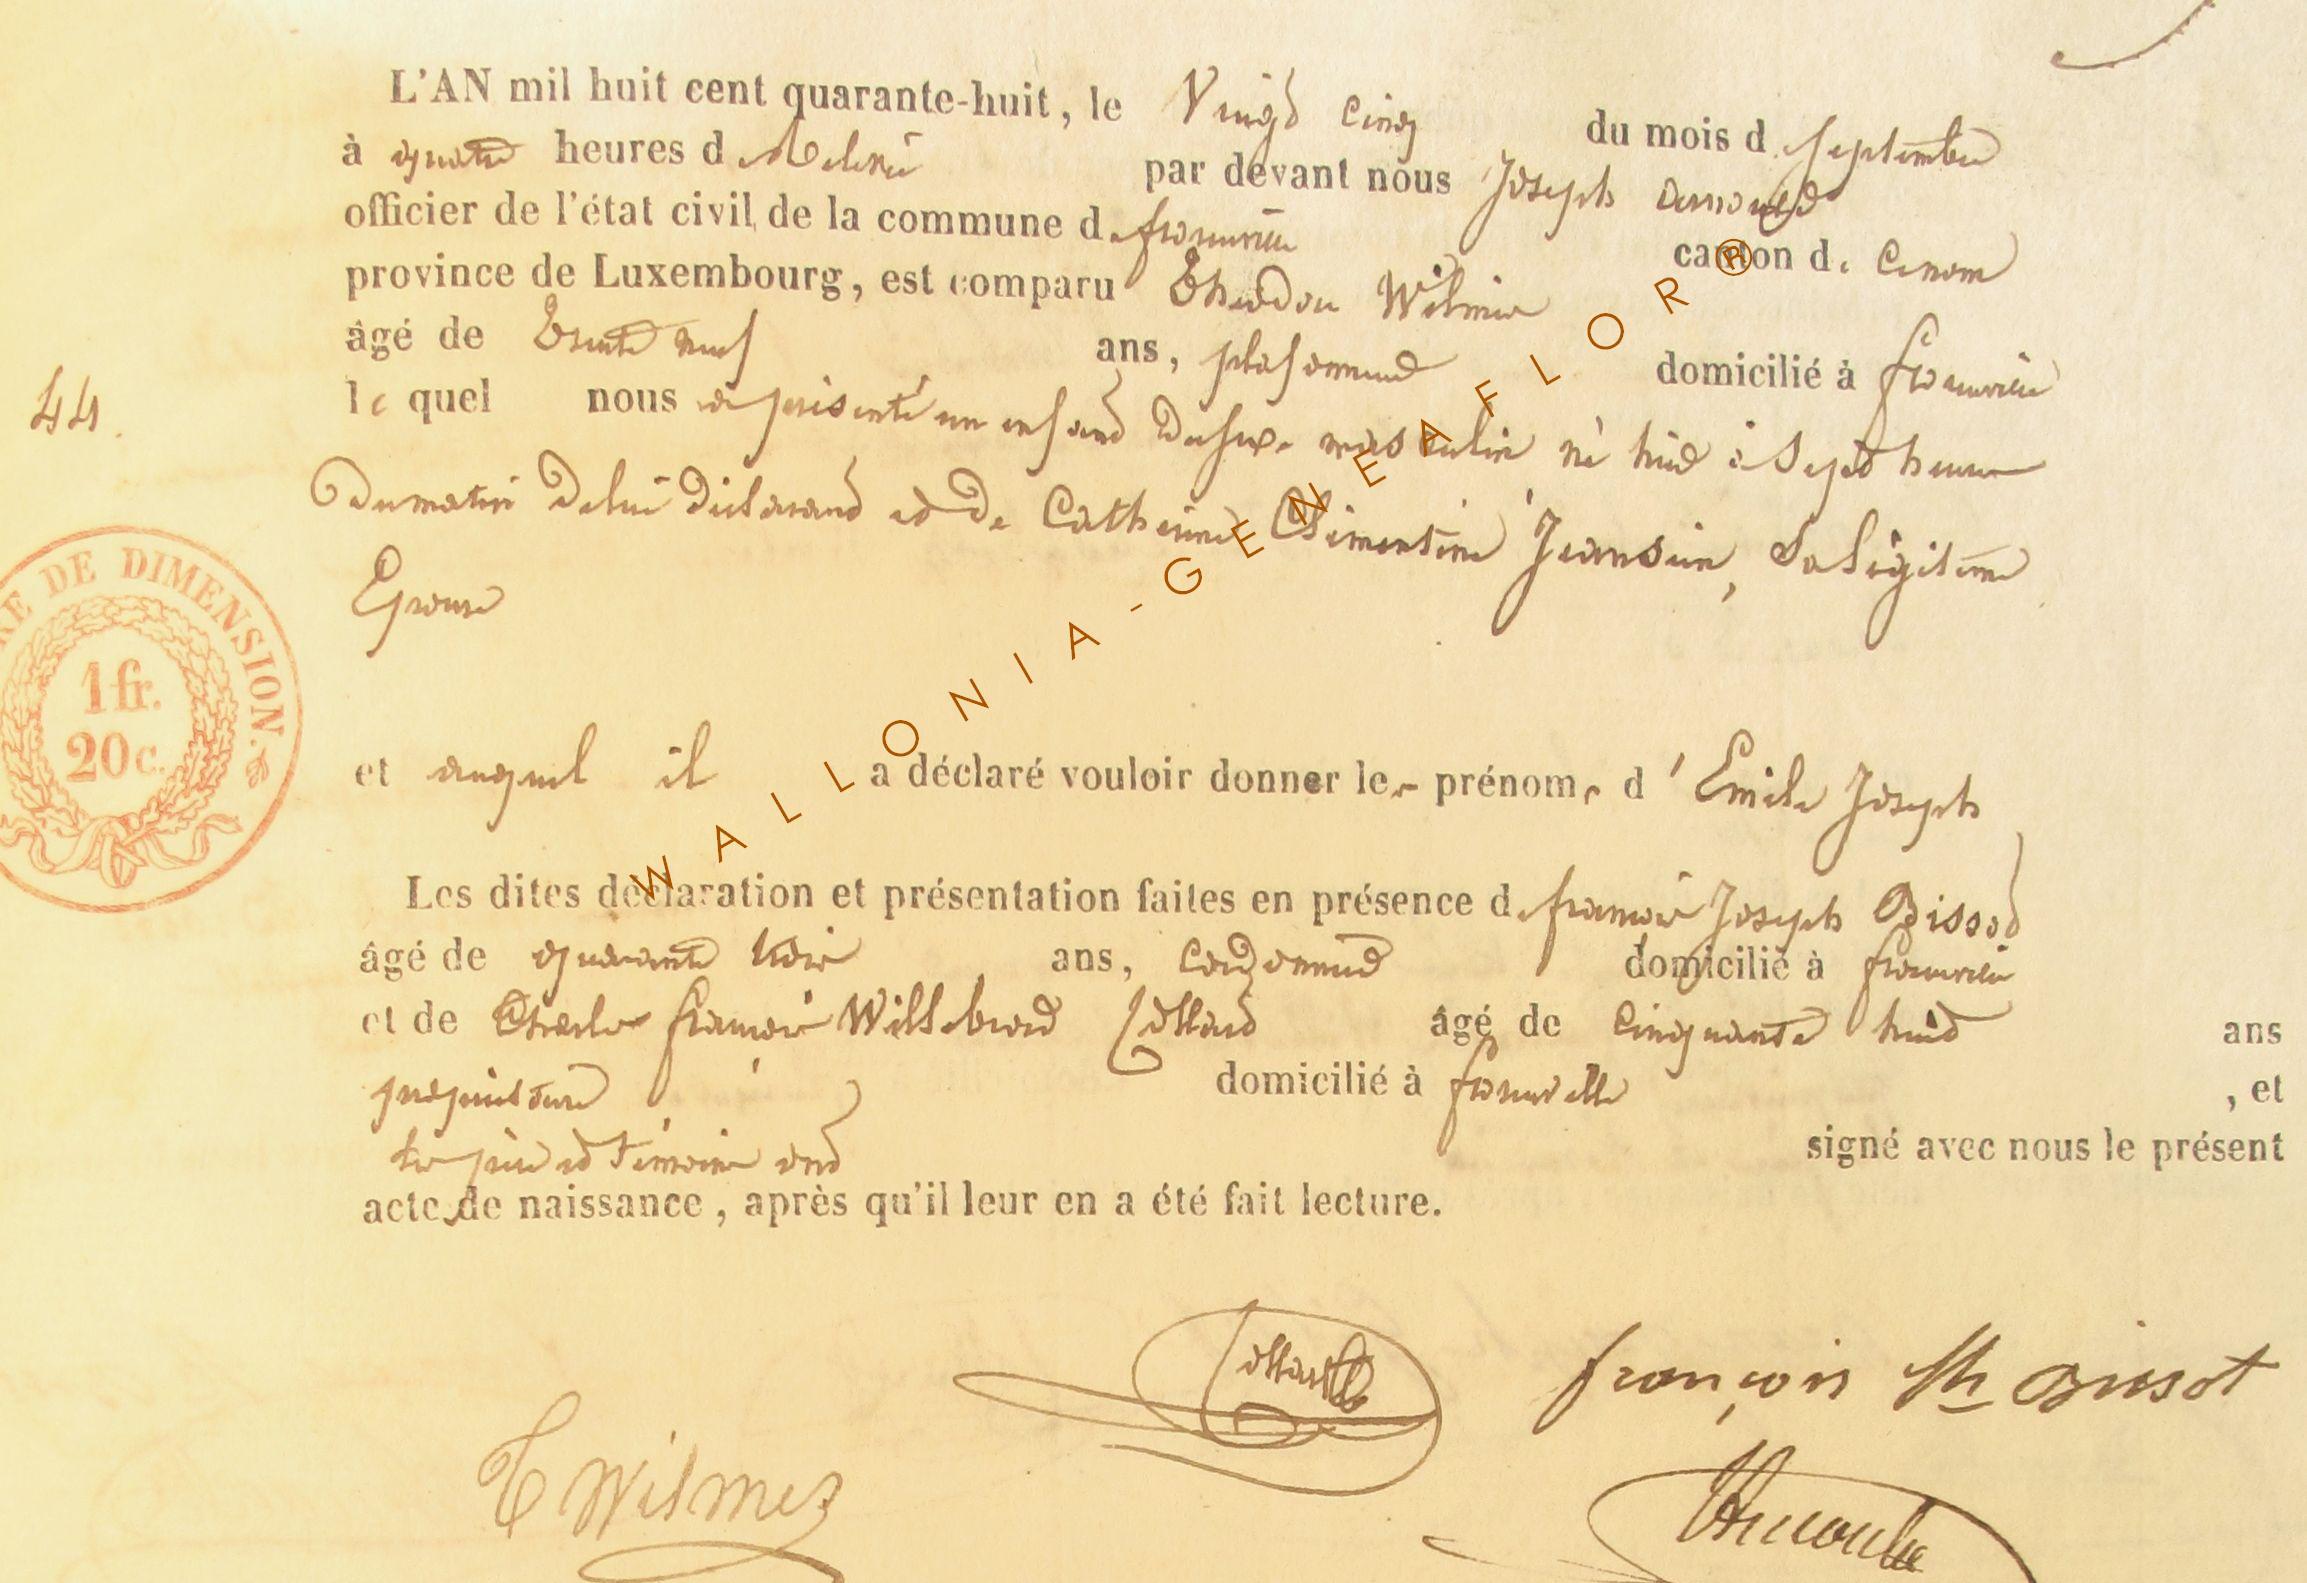 L'AN mil huit cent quarante-huit, le Vingt Cinq du mois de Septembre
à quatre heures de Relevée par devant nous Joseph Arnould
officier de l'état civil de la commune de
province de Luxembourg, est comparu Theodore Wilmes canton de
âgé de Trente neuf ans, plafonneur domicilié à
44
le quel nous a présenté un enfant du sexe masculin né hier à Sept heures
du matin de lui déclarant et de Catherine Clémentine Jeansin, Sa légitime
Epouse
TIMBRE DE DIMENSION.
1 fr.
20 c.
et auquel il a déclaré vouloir donner les prénoms d'Emile Joseph
Les dites déclaration et présentation faites en présence de françois Joseph Bissot
âgé de quarante trois ans, cordonnier domicilié à
et de Charles françois Willebrord Collard âgé de Cinquante huit ans
domicilié à , et
les père et témoins ont signé avec nous le présent
acte de naissance, après qu'il leur en a été fait lecture.
Collard
françois Jh Bissot
T Wilmes
Arnould
WALLONIA-GENEAFLOR®